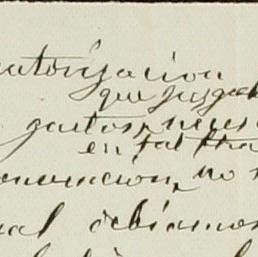 autorizacion
que juzga
gastos, neces
en tal tra
no
ual debiamos